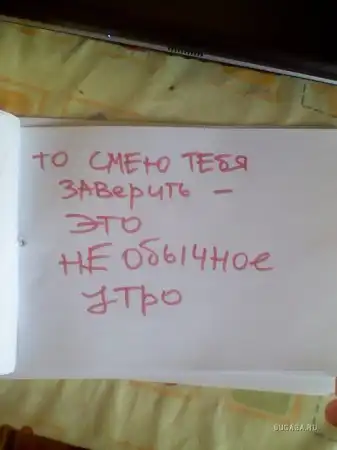 то смею тебя
заверить –
это
не обычное
утро
BUGAGA.RU